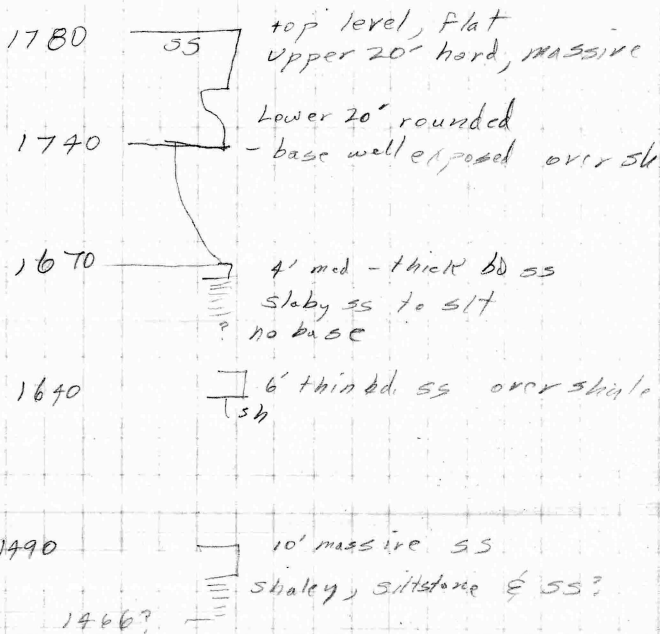 1780 ss top level, flat
Upper 20' hard, massive
Lower 20' rounded
1740 - base well exposed over sh
1670 4' med - thick bd ss
slaby ss to slt
? no base
1640 6' thin bd. ss over shale
sh
1490 10' massive ss
shaley, siltstone & ss?
1466?